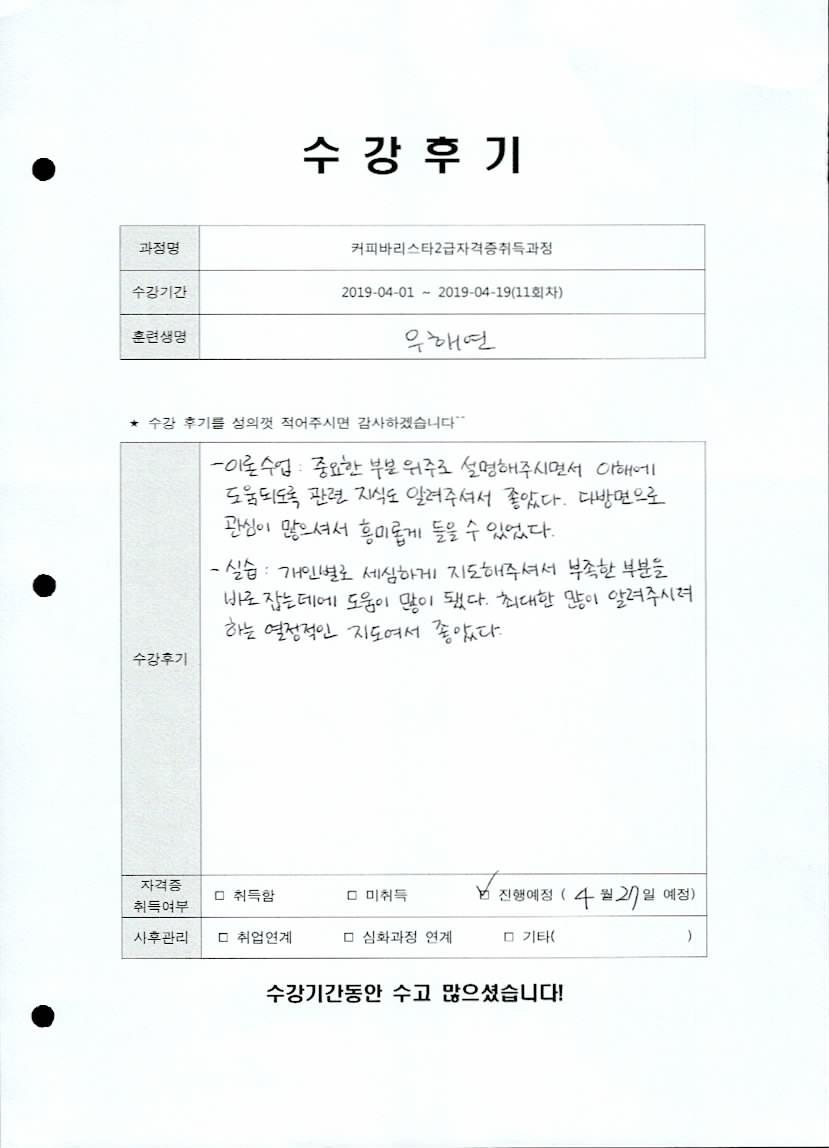 수 강 후 기
과정명 커피바리스타2급자격증취득과정
수강기간 2019-04-01 ~ 2019-04-19(11회차)
훈련생명 우해연
★ 수강 후기를 성의껏 적어주시면 감사하겠습니다^^
- 이론수업 : 중요한 부분 위주로 설명해주시면서 이해에
도움되도록 관련 지식도 알려주셔서 좋았다. 다방면으로
관심이 많으셔서 흥미롭게 들을 수 있었다.
- 실습 : 개인별로 세심하게 지도해주셔서 부족한 부분을
바로 잡는데에 도움이 많이 됐다. 최대한 많이 알려주시려
하는 열정적인 지도여서 좋았다.
수강후기
자격증
취득여부 □ 취득함 □ 미취득 ☑ 진행예정 ( 4 월 27 일 예정)
사후관리 □ 취업연계 □ 심화과정 연계 □ 기타( )
수강기간동안 수고 많으셨습니다!